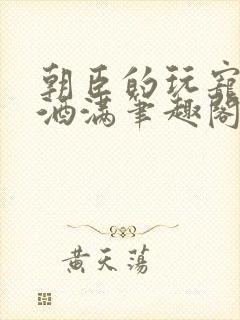 朝臣的玩宠
酒满笔趣阁
黄天荡